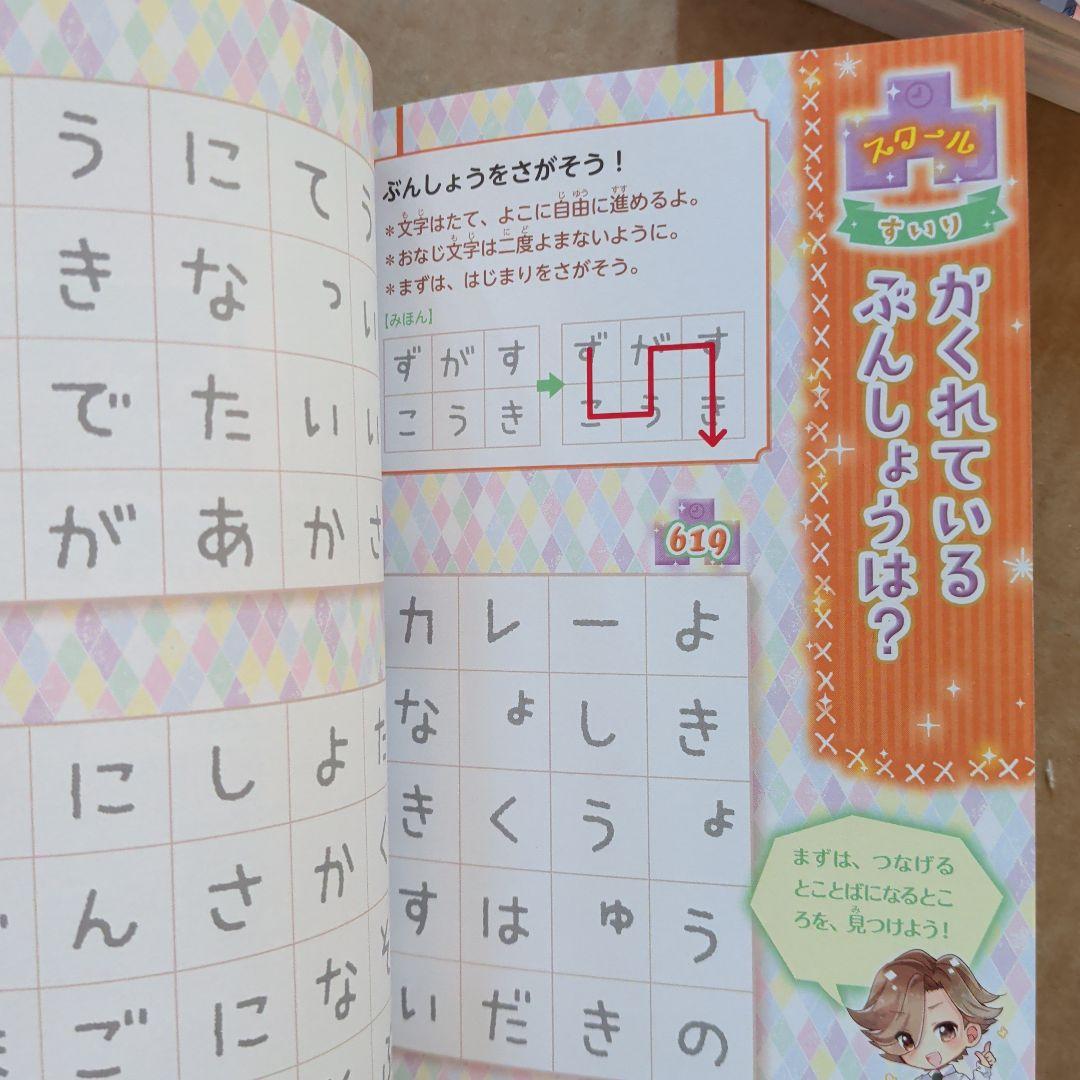 う に て う
き な っ い
で た い い
が あ か さ
に し よ た
ん さ か く
ご に な
ぶんしょうをさがそう！
＊文字はたて、よこに自由に進めるよ。
＊おなじ文字は二度よまないように。
＊まずは、はじまりをさがそう。
【みほん】
ず が す
こ う き
ず が す
こ う き
619
カ レ ー よ
な ょ し き
き く う ょ
す は ゅ う
い だ き の
スクール
すいり
かくれている
ぶんしょうは？
まずは、つなげる
とことばになるとこ
ろを、見つけよう！